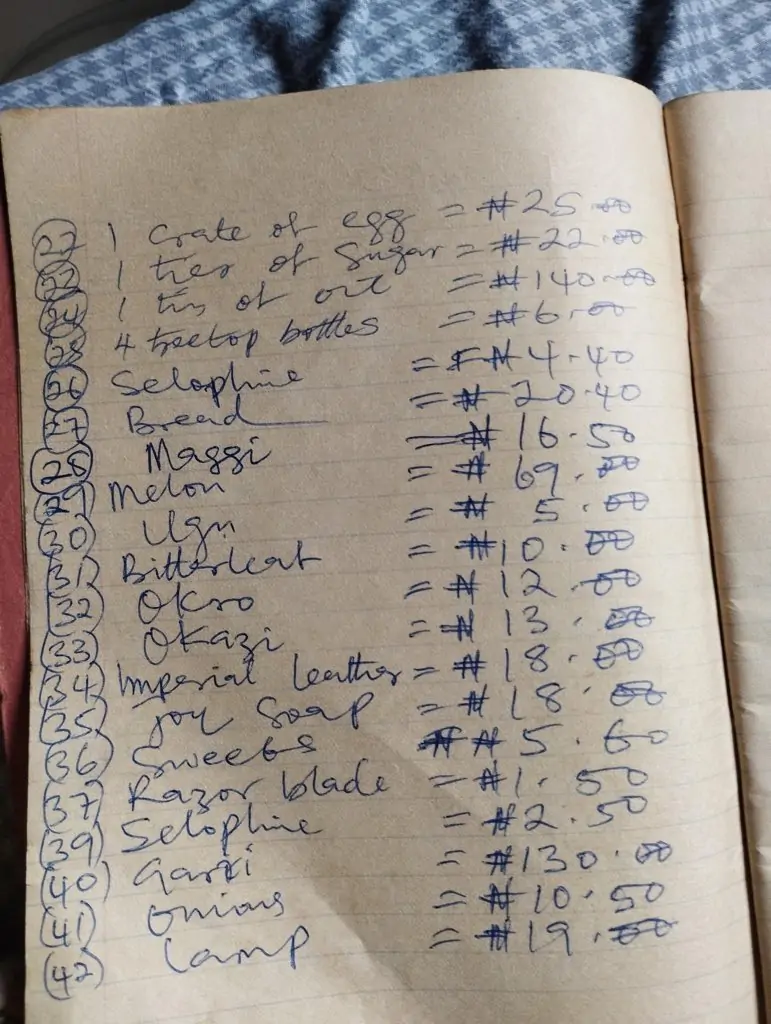 (22) 1 crate of egg = ₦25.00
(23) 1 tier of Sugar = ₦22.00
(24) 1 tin of oil = ₦140.00
(25) 4 treetop bottles = ₦6.00
(26) Selophine = ₦4.40
(27) Bread = ₦20.40
(28) Maggi = ₦16.50
(29) Melon = ₦69.00
(30) Ugu = ₦5.00
(31) Bitterleaf = ₦10.00
(32) Okro = ₦12.00
(33) Okazi = ₦13.00
(34) Imperial leather = ₦18.00
(35) Joy Soap = ₦18.00
(36) Sweets ₦5.60
(37) Razor blade = ₦1.50
(39) Selophine = ₦2.50
(40) Garri = ₦130.00
(41) Onions = ₦10.50
(42) Lamp = ₦19.00